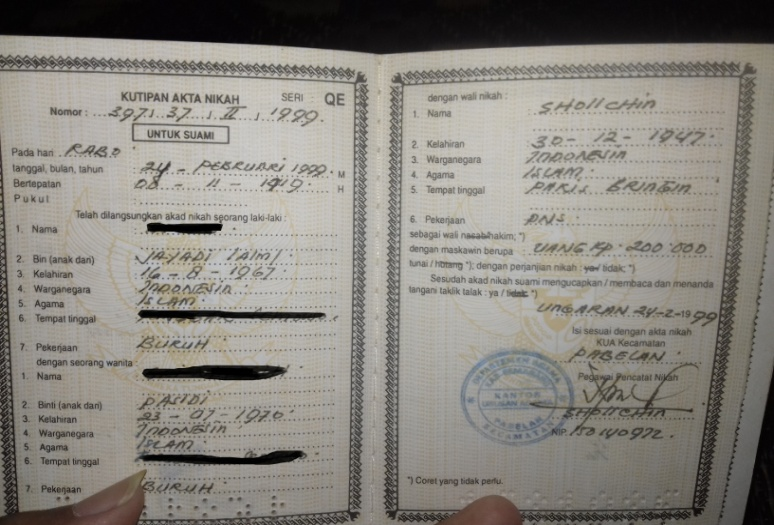 KUTIPAN AKTA NIKAH SERI QE
Nomor : 397/37/II/1999.
UNTUK SUAMI
Pada hari : RABO
tanggal, bulan, tahun 24 - PEBRUARI 1999. M
Bertepatan 08 - 11 - 1419 H
Pukul
Telah dilangsungkan akad nikah seorang laki-laki :
1. Nama
2. Bin (anak dari) JAYADI (alm)
3. Kelahiran 16 - 8 - 1967
4. Warganegara INDONESIA
5. Agama ISLAM
6. Tempat tinggal
7. Pekerjaan BURUH
dengan seorang wanita :
1. Nama
2. Binti (anak dari) PASIDI
3. Kelahiran 23 - 07 - 1970
4. Warganegara INDONESIA
5. Agama ISLAM
6. Tempat tinggal
7. Pekerjaan BURUH
dengan wali nikah :
1. Nama SHOLICHIN
2. Kelahiran 30 - 12 - 1947
3. Warganegara INDONESIA
4. Agama ISLAM
5. Tempat tinggal PARIS BRINGIN
6. Pekerjaan PNS
sebagai wali nasab/hakim; *)
dengan maskawin berupa UANG Rp. 200.000
tunai / hutang *); dengan perjanjian nikah : ya/ tidak; *)
Sesudah akad nikah suami mengucapkan / membaca dan menanda
tangani taklik talak : ya / tidak *)
UNGARAN 24-2-1999
Isi sesuai dengan akta nikah
KUA Kecamatan
PABELAN
Pegawai Pencatat Nikah
DEPARTEMEN AGAMA
KANTOR
URUSAN AGAMA
PABELAN
KECAMATAN
SHOLICHIN
NIP. 150140972
*) Coret yang tidak perlu.